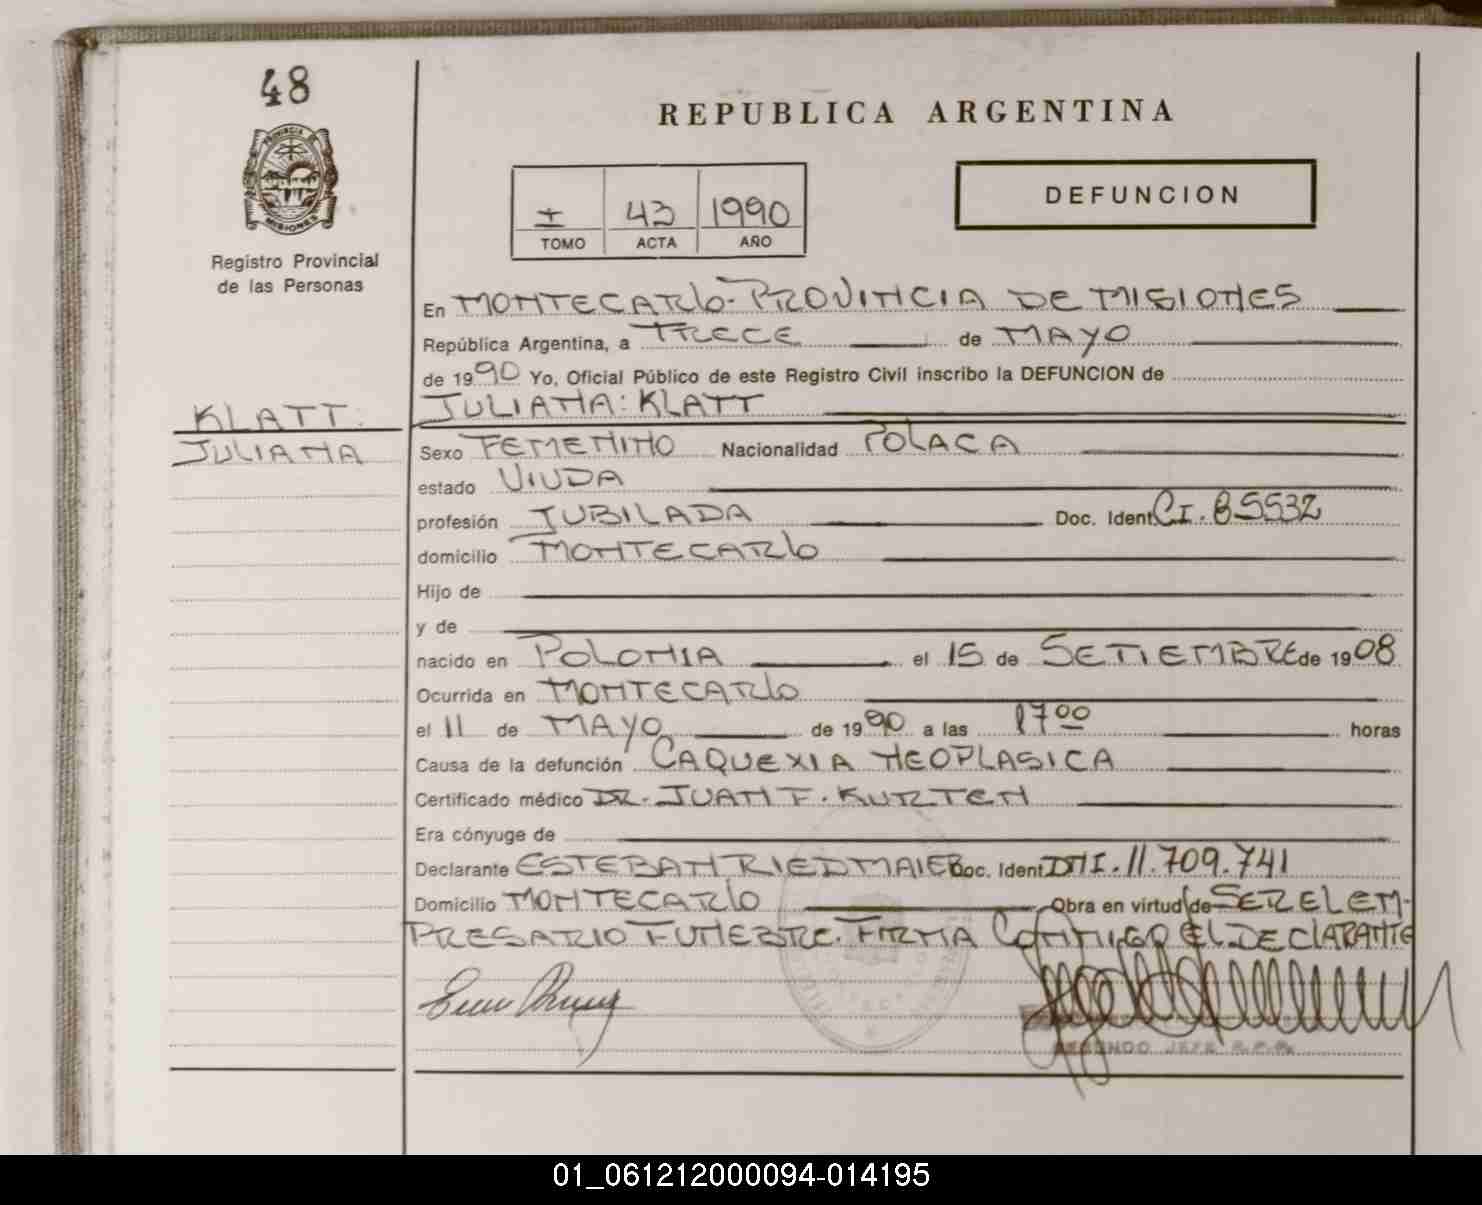 48
PROVINCIA DE
MISIONES
Registro Provincial
de las Personas
KLATT.
JULIANA
REPUBLICA ARGENTINA
I 43 1990
TOMO ACTA AÑO
DEFUNCION
En MONTECARLO-PROVINCIA DE MISIONES
República Argentina, a TRECE de MAYO
de 1990 Yo, Oficial Público de este Registro Civil inscribo la DEFUNCION de
JULIANA: KLATT
Sexo FEMENINO Nacionalidad POLACA
estado VIUDA
profesión JUBILADA Doc. Ident CI. 85532
domicilio MONTECARLO
Hijo de
y de
nacido en POLONIA el 15 de SETIEMBRE de 1908
Ocurrida en MONTECARLO
el 11 de MAYO de 1990 a las 17 00 horas
Causa de la defunción CAQUEXIA NEOPLASICA
Certificado médico DR. JUAN F. KURTEN
Era cónyuge de
Declarante ESTEBAN RIEDMAIER Doc. Ident DNI. 11.709.741
Domicilio MONTECARLO Obra en virtud de SER EL EM-
PRESARIO FUNEBRE. FIRMA CONMIGO EL DECLARANTE
SEGUNDO JEFE R.P.P.
01_061212000094-014195